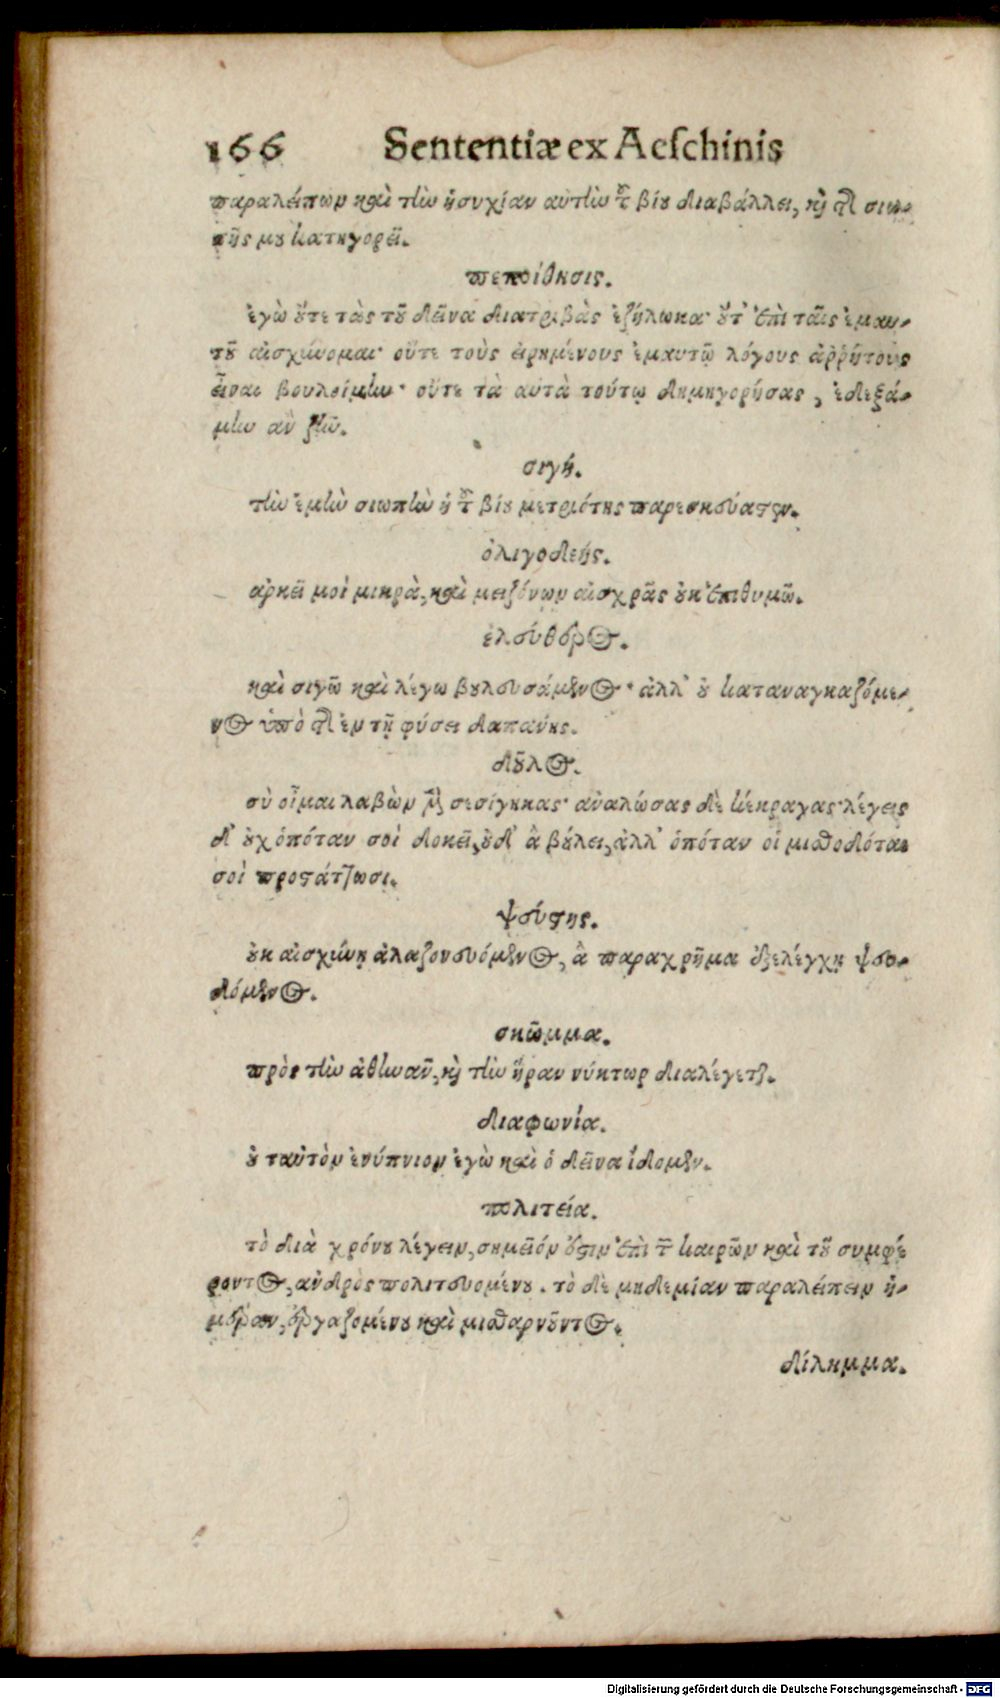 166 Sententiæ ex Aeſchinis
παραλείπων καὶ τὴν ἡσυχίαν αὐτὴν τοῦ βίου διαβάλλει, καὶ τῆς σιω-
πῆς μου κατηγορεῖ.
πεποίθησις.
ἐγὼ οὔτε τὰς τοῦ δεῖνα διατριβὰς ἐζήλωκα· οὔτ' ἐπὶ ταῖς ἐμαυ-
τοῦ αἰσχύνομαι· οὔτε τοὺς εἰρημένους ἐμαυτῷ λόγους ἀῤῥήτους
εἶναι βουλοίμην· οὔτε τὰ αὐτὰ τούτῳ δημηγορήσας, ἐδεξά-
μην ἂν ζῆν.
σιγή.
τὴν ἐμὴν σιωπὴν ἡ τοῦ βίου μετριότης παρεσκεύασεν.
ὀλιγοδεής.
ἀρκεῖ μοὶ μικρὰ, καὶ μειζόνων αἰσχρῶς οὐκ ἐπιθυμῶ.
ἐλεύθερος.
καὶ σιγῶ καὶ λέγω βουλευσάμενος· ἀλλ' οὐ καταναγκαζόμε-
νος ὑπὸ τῆς ἐν τῇ φύσει δαπάνης.
δοῦλος.
σὺ οἶμαι λαβὼν μὲν σεσίγηκας· ἀναλώσας δὲ κέκραγας· λέγεις
δ' οὐχ ὁπόταν σοὶ δοκεῖ, οὐδ' ἃ βούλει, ἀλλ' ὁπόταν οἱ μισθοδόται
σοὶ προστάττωσι.
ψεύστης.
οὐκ αἰσχύνῃ ἀλαζονευόμενος, ἃ παραχρῆμα ἐξελέγχῃ ψευ-
δόμενος.
σκῶμμα.
πρὸς τὴν ἀθηνᾶν, καὶ τὴν ἥραν νύκτωρ διαλέγεται.
διαφωνία.
οὐ ταὐτὸν ἐνύπνιον ἐγὼ καὶ ὁ δεῖνα ἴδομεν.
πολιτεία.
τὸ διὰ χρόνου λέγειν, σημεῖόν ἐστιν ἐπὶ τῶν καιρῶν καὶ τοῦ συμφέ
ροντος, ἀνδρὸς πολιτευομένου. τὸ δὲ μηδεμίαν παραλείπειν ἡ-
μέραν, ἐργαζομένου καὶ μισθαρνοῦντος.
δίλημμα.
Digitalisierung gefördert durch die Deutsche Forschungsgemeinschaft - DFG